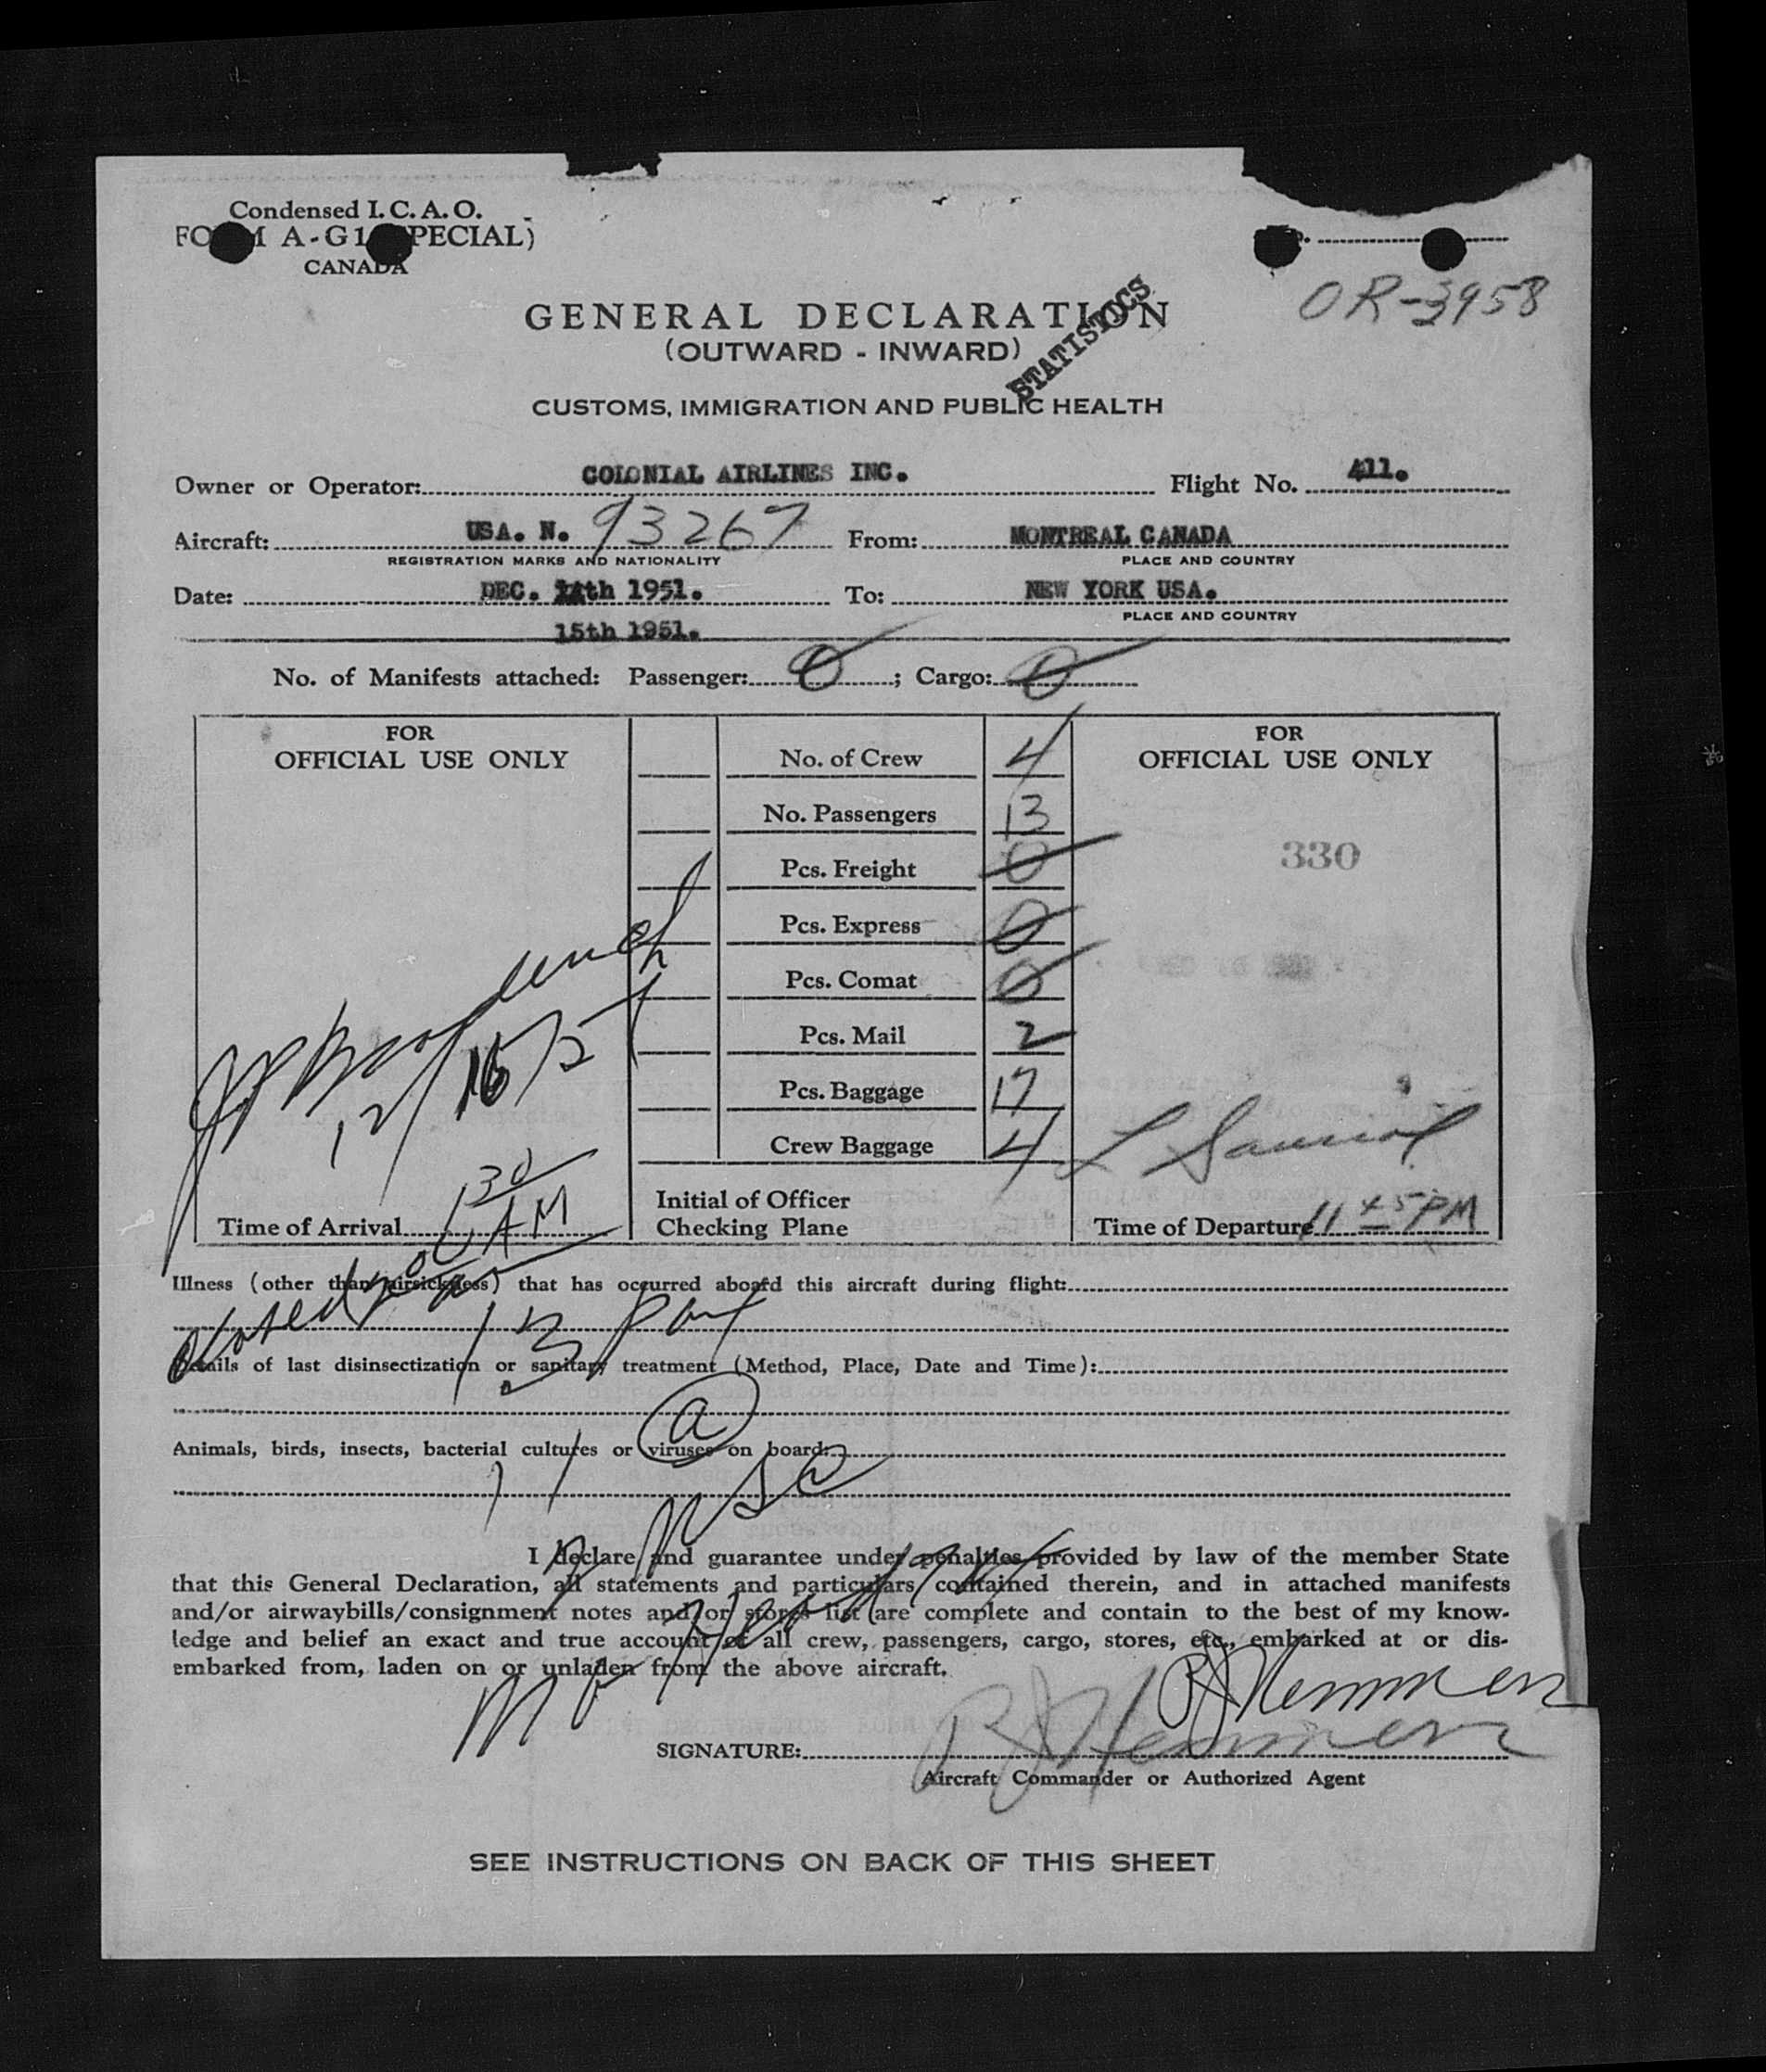 Condensed I. C. A. O.
FORM A-G1 (SPECIAL)
CANADA
OR-3958
GENERAL DECLARATION
(OUTWARD - INWARD)
STATISTICS
CUSTOMS, IMMIGRATION AND PUBLIC HEALTH
Owner or Operator: COLONIAL AIRLINES INC. Flight No. 411.
Aircraft: USA. N. 93267 From: MONTREAL CANADA
REGISTRATION MARKS AND NATIONALITY PLACE AND COUNTRY
Date: DEC. 14th 1951. To: NEW YORK USA.
PLACE AND COUNTRY
15th 1951.
No. of Manifests attached: Passenger: 0 ; Cargo: 0
FOR OFFICIAL USE ONLY
FOR OFFICIAL USE ONLY
No. of Crew 4
No. Passengers 13
330
Pcs. Freight 0
Pcs. Express 0
Pcs. Comat 0
Pcs. Mail 2
12/16/51
Pcs. Baggage 17
Crew Baggage 4
Initial of Officer
Checking Plane
Time of Arrival 1 30 AM
Time of Departure 11 45 PM
Illness (other than airsickness) that has occurred aboard this aircraft during flight:
13 Pax
Details of last disinsectization or sanitary treatment (Method, Place, Date and Time):
a
Animals, birds, insects, bacterial cultures or viruses on board:
I declare and guarantee under penalties provided by law of the member State
that this General Declaration, all statements and particulars contained therein, and in attached manifests
and/or airwaybills/consignment notes and/or stores list are complete and contain to the best of my know-
ledge and belief an exact and true account of all crew, passengers, cargo, stores, etc., embarked at or dis-
embarked from, laden on or unladen from the above aircraft.
SIGNATURE:
Aircraft Commander or Authorized Agent
SEE INSTRUCTIONS ON BACK OF THIS SHEET